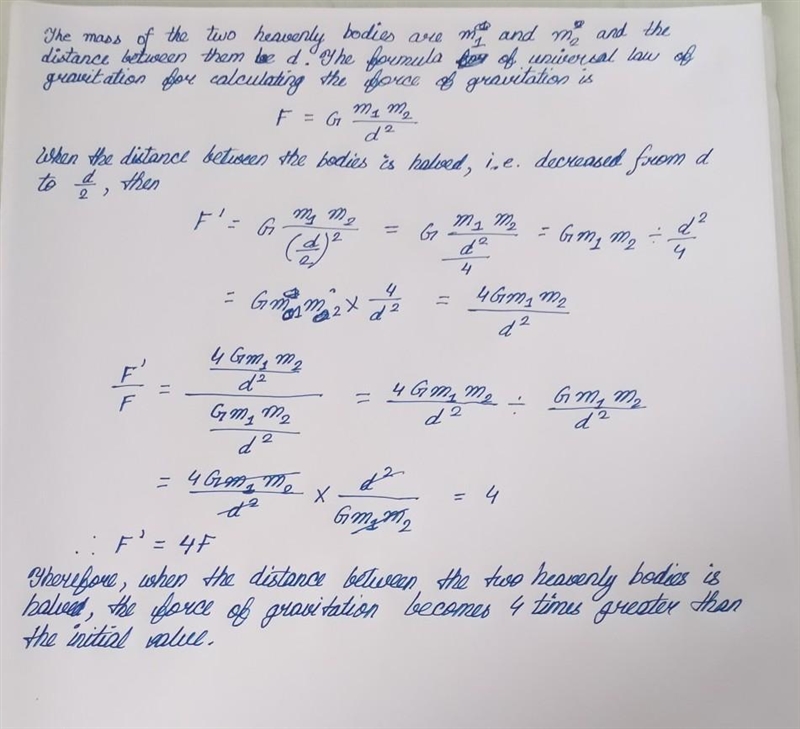 The mass of the two heavenly bodies are m₁ and m₂ and the
distance between them be d. The formula of universal law of
gravitation for calculating the force of gravitation is
F = G \frac{m₁ m₂}{d²}
When the distance between the bodies is halved, i.e. decreased from d
to \frac{d}{2}, then
F' = G \frac{m₁ m₂}{(\frac{d}{2})²} = G \frac{m₁ m₂}{\frac{d²}{4}} = Gm₁ m₂ ÷ \frac{d²}{4}
= Gm₁m₂ × \frac{4}{d²} = \frac{4Gm₁ m₂}{d²}
\frac{F'}{F} = \frac{\frac{4Gm₁ m₂}{d²}}{\frac{Gm₁ m₂}{d²}} = \frac{4Gm₁ m₂}{d²} ÷ \frac{Gm₁ m₂}{d²}
= \frac{4Gm₁ m₂}{d²} × \frac{d²}{Gm₁m₂} = 4
∴ F' = 4F
Therefore, when the distance between the two heavenly bodies is
halved, the force of gravitation becomes 4 times greater than
the initial value.